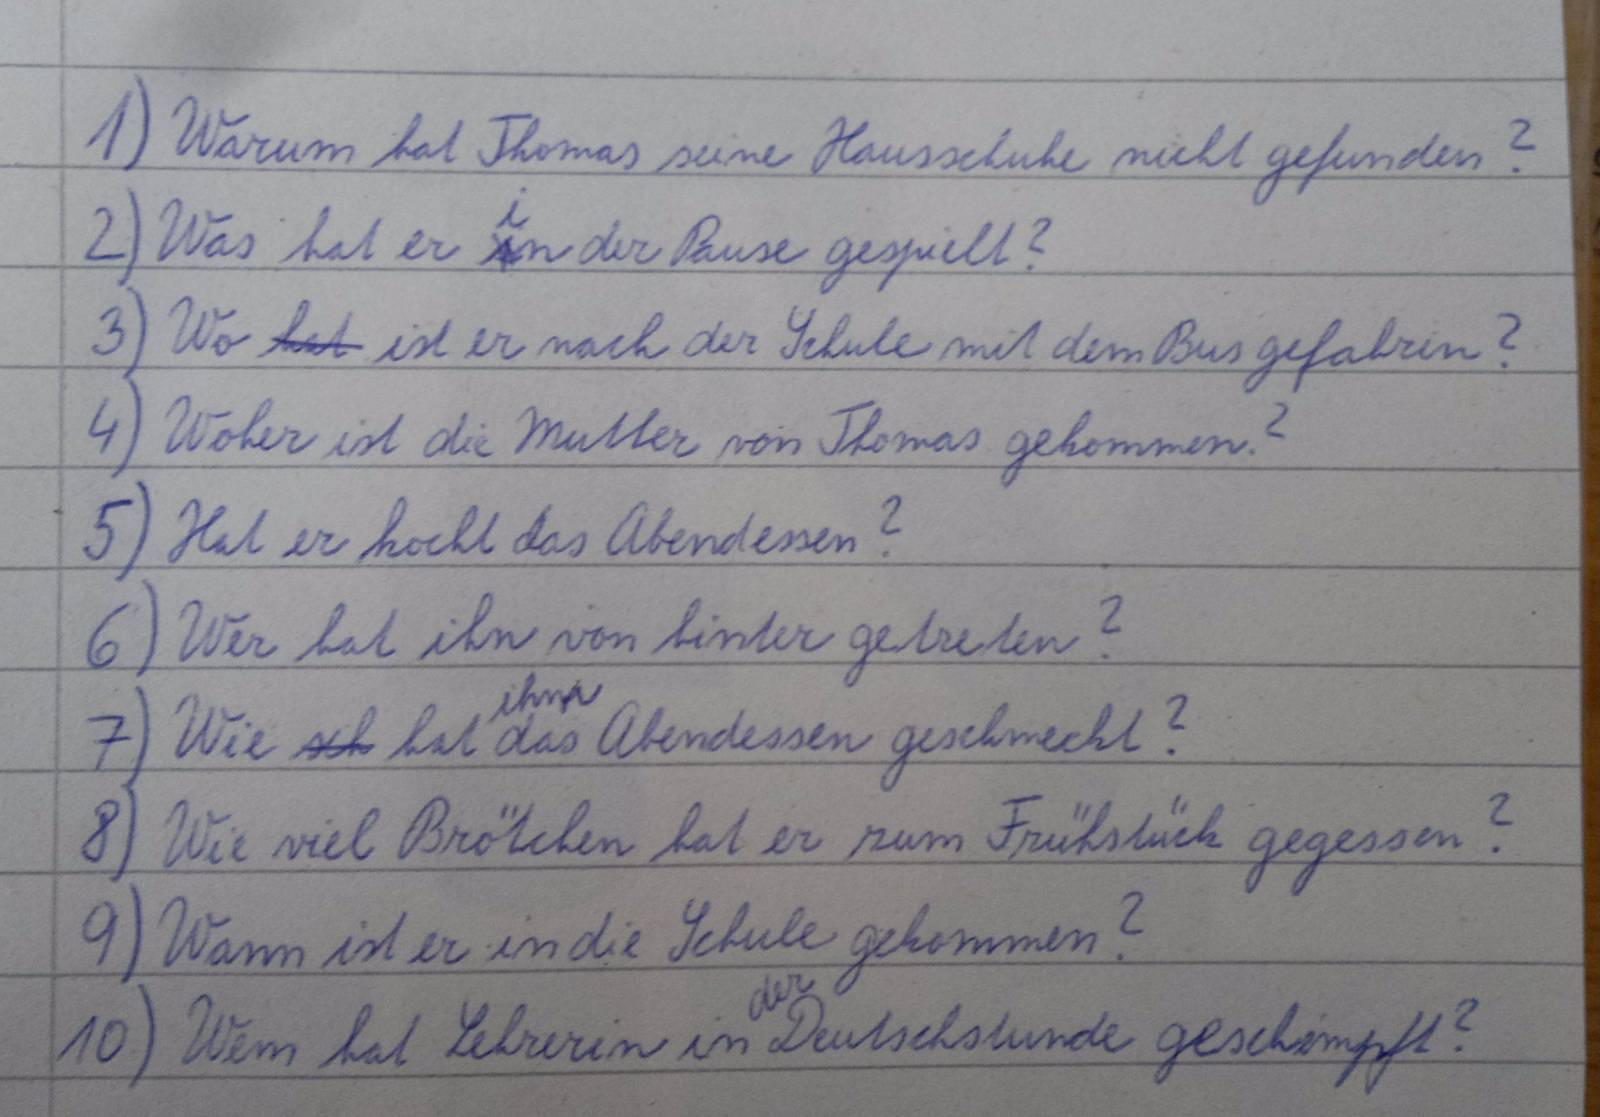 1) Warum hat Thomas seine Hausschuhe nicht gefunden?
2) Was hat er in der Pause gespielt?
3) Wo hat ist er nach der Schule mit dem Bus gefahren?
4) Woher ist die Mutter von Thomas gekommen?
5) Hat er kocht das Abendessen?
6) Wer hat ihn von hinter getreten?
7) Wie sch hat ihm das Abendessen geschmeckt?
8) Wie viel Brötchen hat er zum Frühstück gegessen?
9) Wann ist er in die Schule gekommen?
10) Wem hat Lehrerin in der Deutschstunde geschimpft?